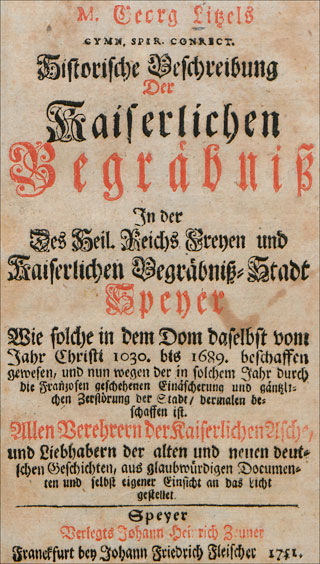 M. Georg Litzels
GYMN. SPIR. CONRECT.
Historische Beschreibung
Der
Kaiserlichen
Begräbniß
In der
Des Heil. Reichs Freyen und
Kaiserlichen Begräbniß-Stadt
Speyer
Wie solche in dem Dom daselbst vom
Jahr Christi 1030. bis 1689. beschaffen
gewesen, und nun wegen der in solchem Jahr durch
die Franzosen geschehenen Einäscherung und gäntzli-
chen Zerstörung der Stadt/ dermalen be-
schaffen ist.
Allen Verehrern der Kaiserlichen Asche,
und Liebhabern der alten und neuen deut-
schen Geschichten, aus glaubwürdigen Documen-
ten und selbst eigener Einsicht an das Licht
gestellet.
Speyer
Verlegts Johann Heinrich Zeuner
Franckfurt bey Johann Friedrich Fleischer 1751.